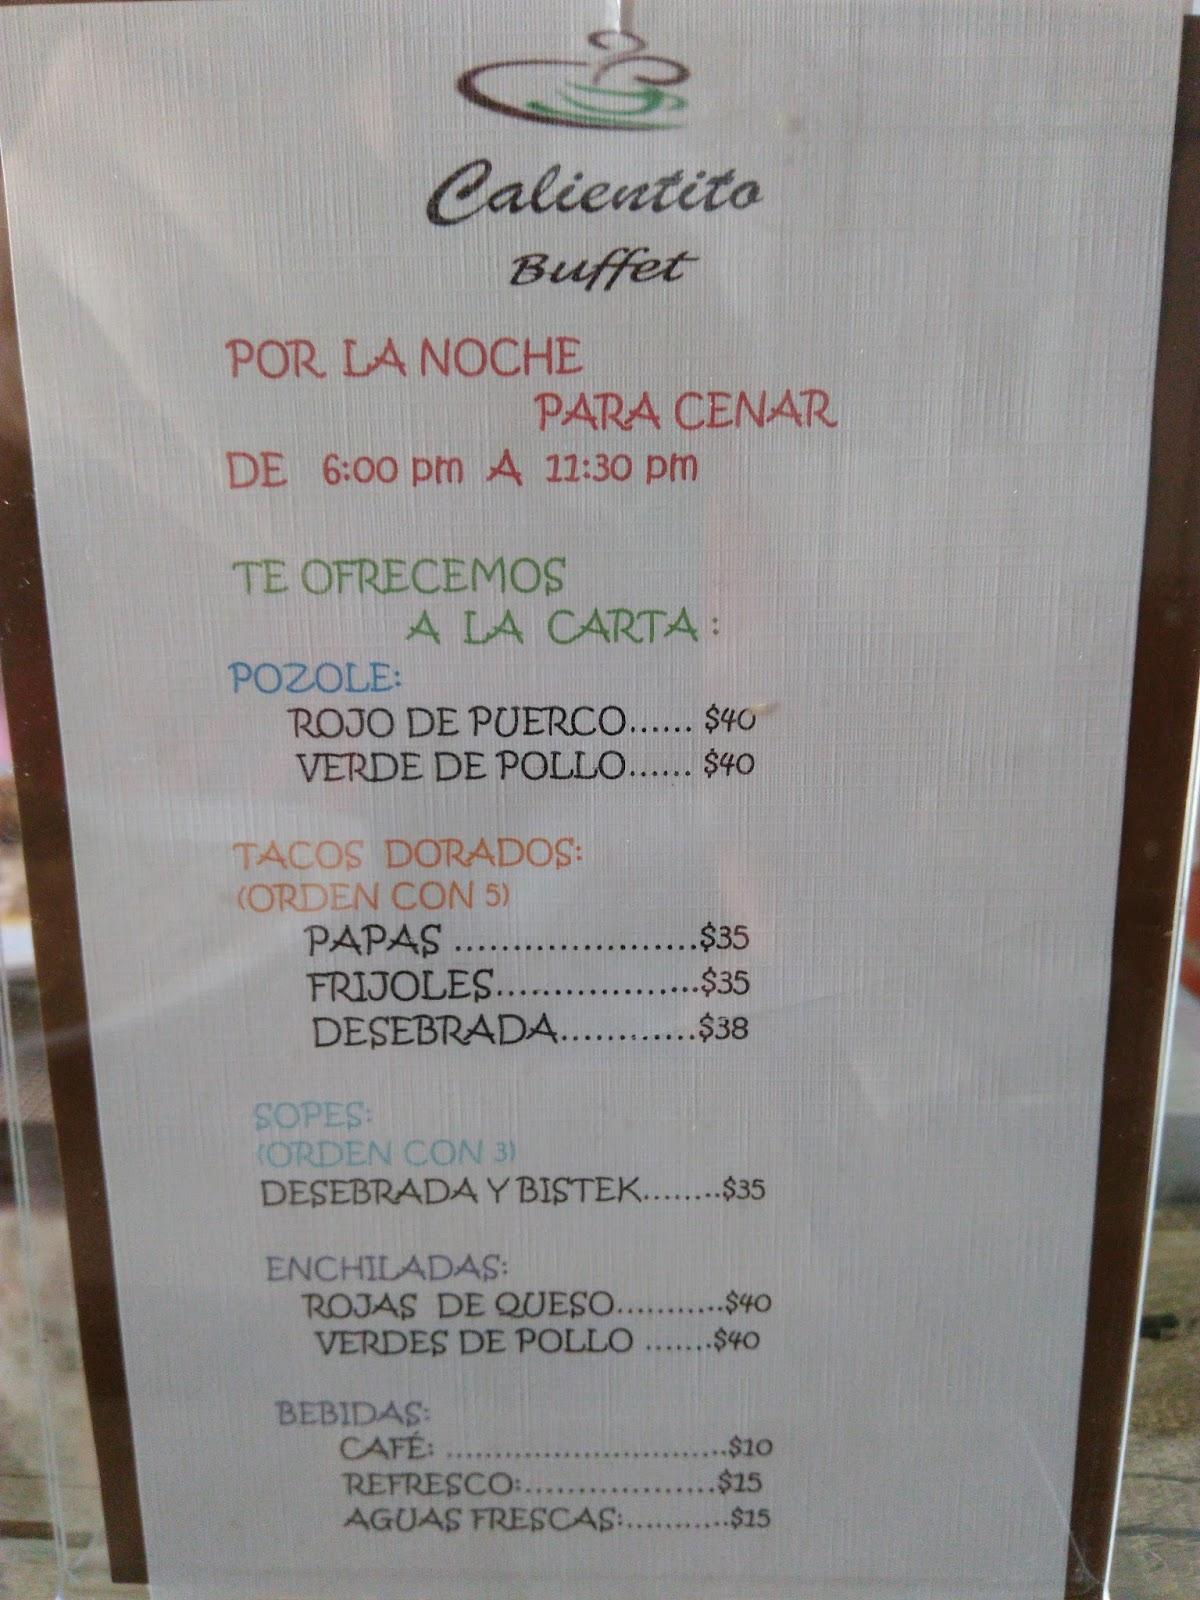 Calientito
Buffet
POR LA NOCHE
PARA CENAR
DE 6:00 pm A 11:30 pm
TE OFRECEMOS
A LA CARTA :
POZOLE:
ROJO DE PUERCO...... $40
VERDE DE POLLO...... $40
TACOS DORADOS:
(ORDEN CON 5)
PAPAS .....................$35
FRIJOLES..................$35
DESEBRADA............$38
SOPES:
(ORDEN CON 3)
DESEBRADA Y BISTEK........$35
ENCHILADAS:
ROJAS DE QUESO...........$40
VERDES DE POLLO .......$40
BEBIDAS:
CAFÉ: ............................$10
REFRESCO:...................$15
AGUAS FRESCAS:...........$15